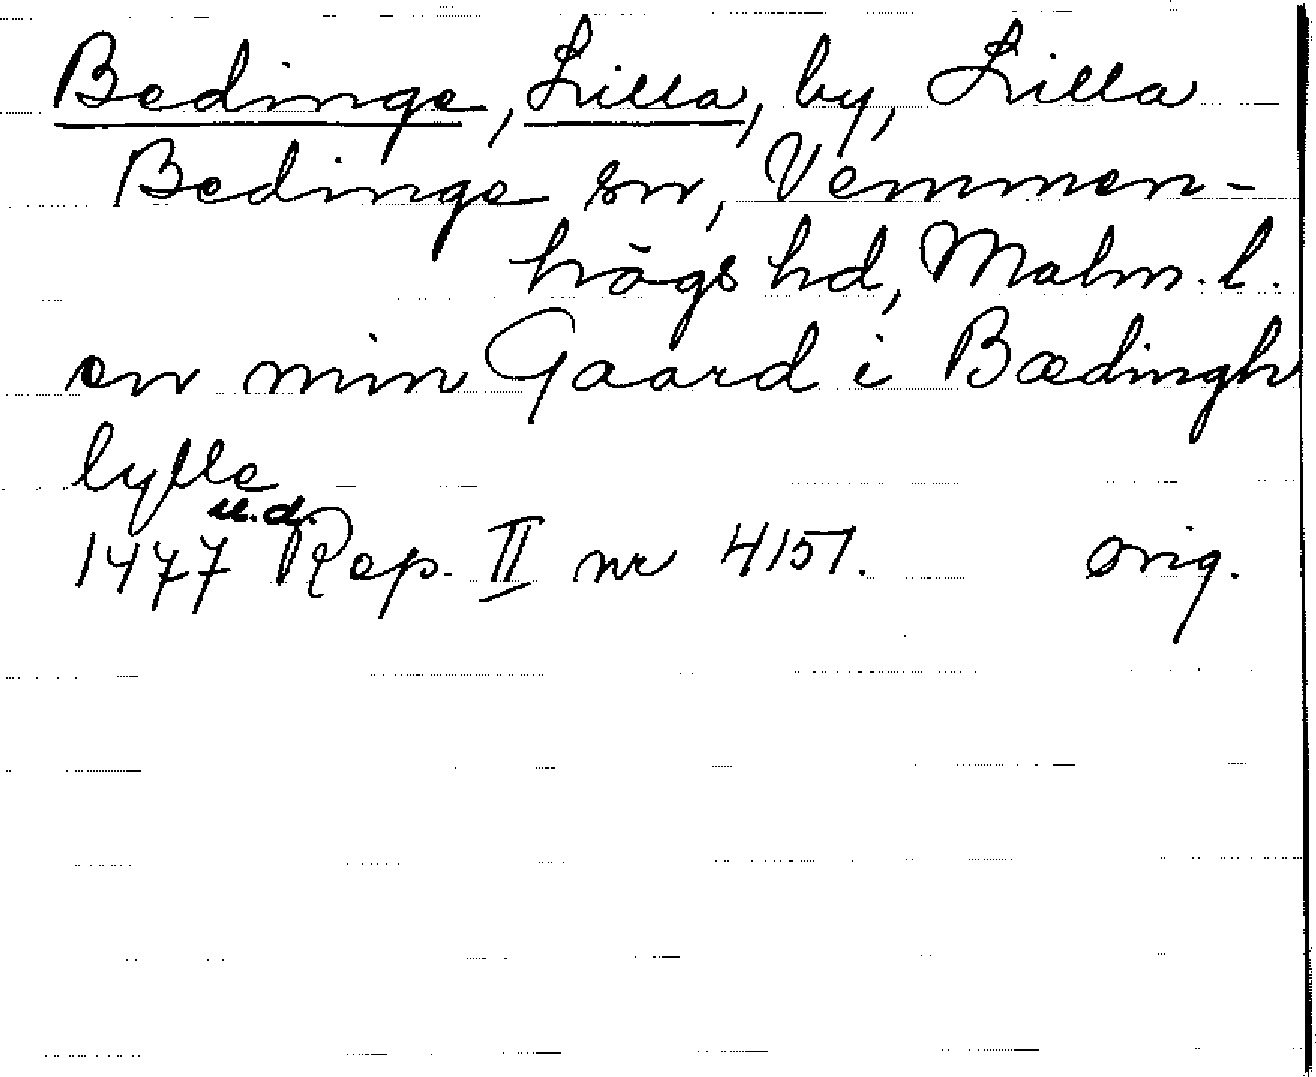 Bedinge, Lilla, by, Lilla
Bedinge sn, Vemmen-
högs hd, Malm. l.
en min Gaard i Bædingh
lylle
u.d.
1477 Rep. II nr 4151. orig.